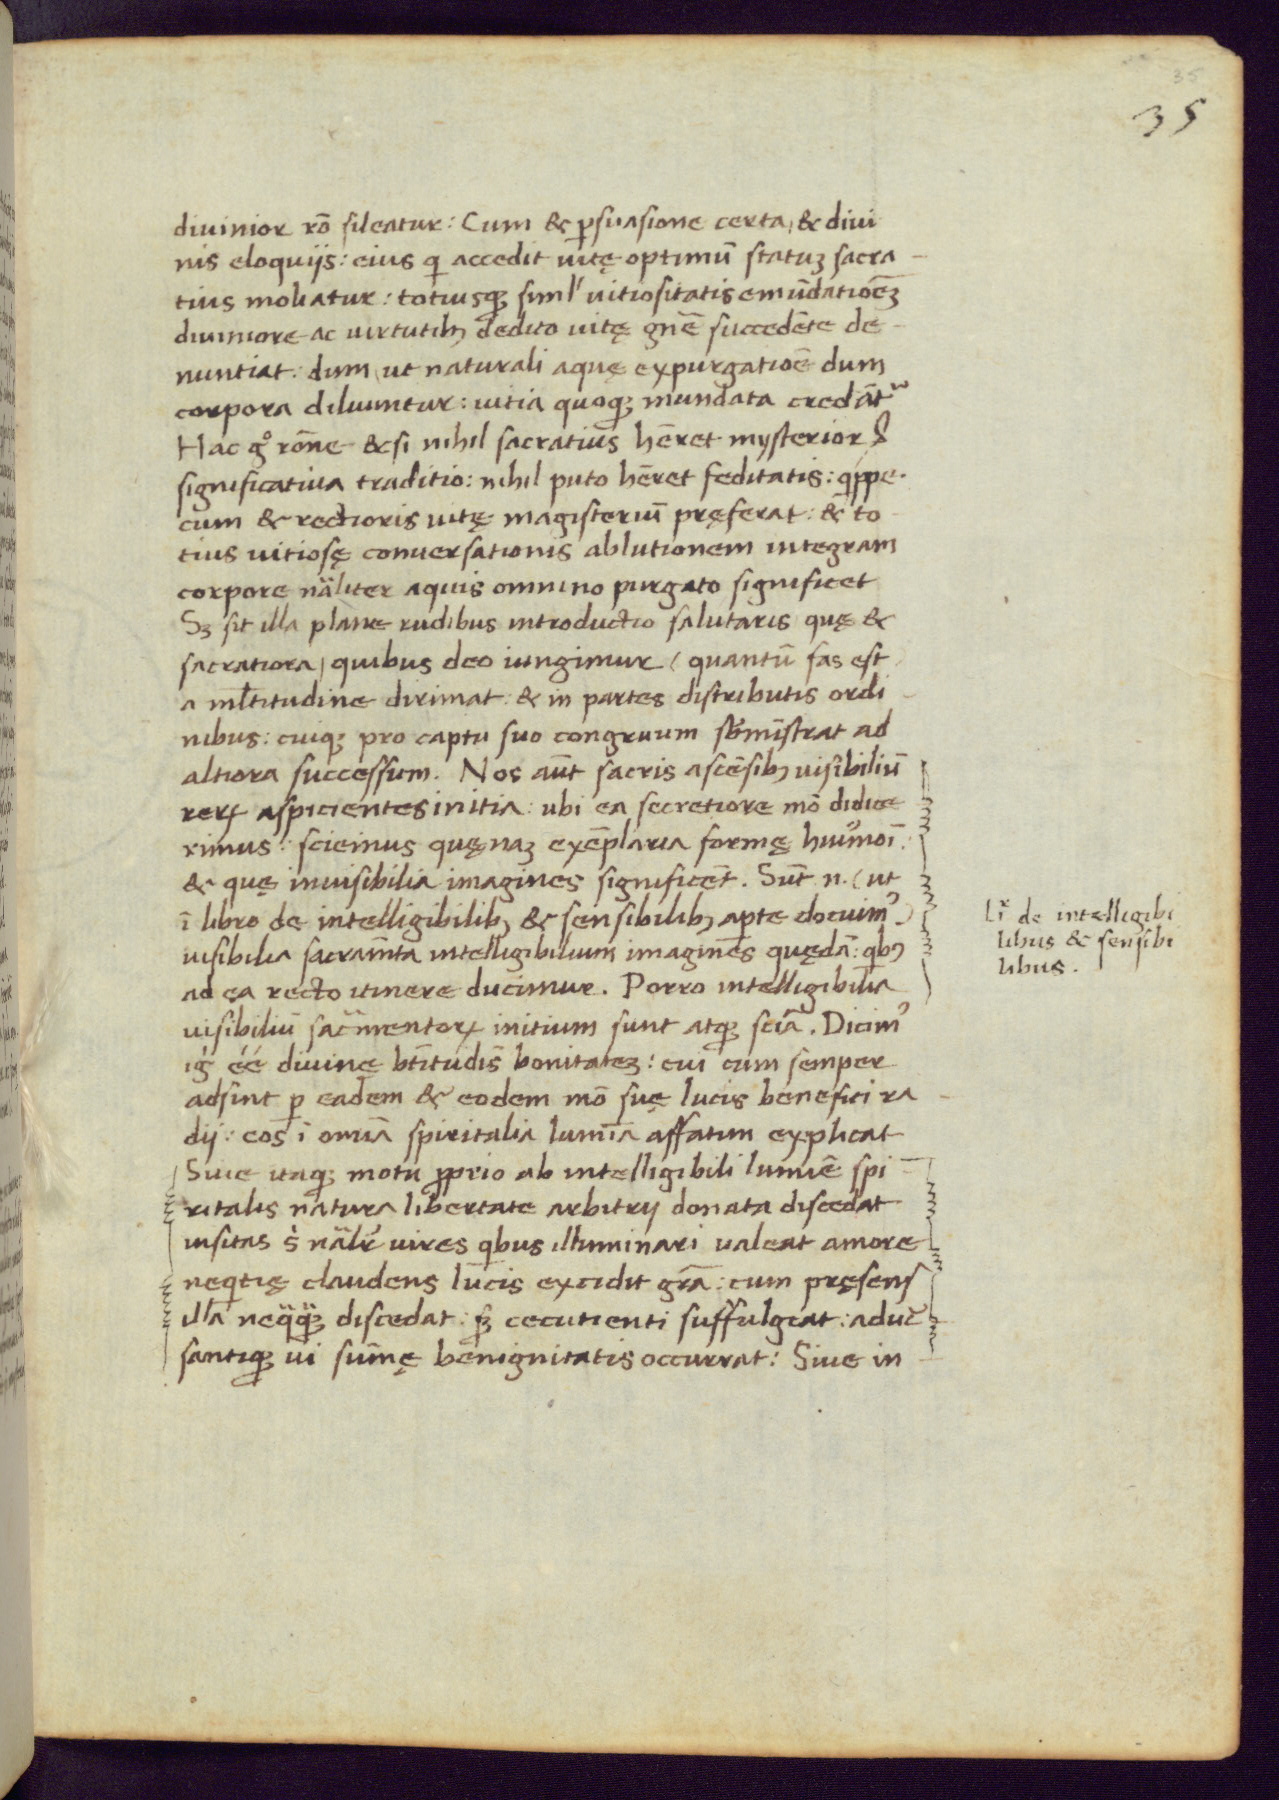 35
35
diuinior rō sileatur: Cum & ꝑsuasione certa, & diui
nis eloquijs: eius qi accedit uitę optimū statuꝫ sacra-
tius moliatur: totiusqꝫ siml' uitiositatis emūdatiōeꝫ
diuiniore ac uirtutibꝫ dedito uitę gn̄e succedēte de-
nuntiat: dum, ut naturali aquę expurgatiōe dum
corpora diluuntur: uitia quoqꝫ mundata credāt᷑
Hac gͦ rōne & si nihil sacratius hēret mysterioꝝ
significatiua traditio: nihil puto hēret feditatis: qippe.
cum & rectioris uitę magisteriū pręferat: & to-
tius uitiosę conuersationis ablutionem integram
corpore nāliter aquis omnino purgato significet
Sꝫ sit illa plane rudibus introductio salutaris quę &
sacratiora, quibus deo iungimur (quantū fas est
a ml̄titudine dirimat: & in partes distributis ordi-
nibus: cuiqꝫ pro captu suo congruum sb̄mīstrat ad
altiora successum. Nos aūt sacris ascēsibꝫ uisibiliū
rerꝝ aspicientes initia: ubi ea secretiore mō didice
rimus: sciemus quęnaꝫ exēplaria formę huiᷤmoi:
& quę inuisibilia imagines significēt. Sūt n. (ut
ī libro de intelligibilibꝫ & sensibilibꝫ aperte docuimꝰ)
uisibilia sacram̄ta intelligibilium imagines quędā: qibꝫ
ad ea recto itinere ducimur. Porro intelligibilia
uisibiliū sacᷓmentorꝝ initium sunt atqꝫ sciā. Dicimꝰ
igi éé diuinę btītudīs bonitateꝫ: cui cum semper
adsint ꝑ eadem & eodem mō suę lucis benefici ra-
dij: eos ī omīa spiritalia lumīa affatim explicat
Siue itaqꝫ motu ꝓprio ab intelligibili lumīe spi-
ritalis natura libertate arbitrij donata discedat
insitas s' nālr' uires qibus illuminari ualeat amore
neqtię claudens lūcis excidit grā: cum pręsens
illa neqᷓqᷓꝫ discedat: sꝫ cecutienti suffulgeat: aduer
santiqꝫ ui sūmę benignitatis occurrat: Siue in
Lr̄ de intelligibi
libus & sensibi
libus.